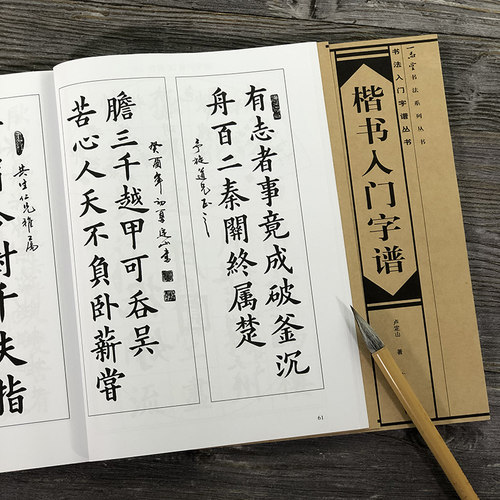 书法系列丛书
书法入门字谱丛书
楷书入门字谱
卢定山 著
有志者事竟成破釜沉
舟百二秦關終属楚
苦心人天不負卧薪嘗
膽三千越甲可吞吴
癸酉年初夏
共生仁兄雅属
冷对千夫指
61